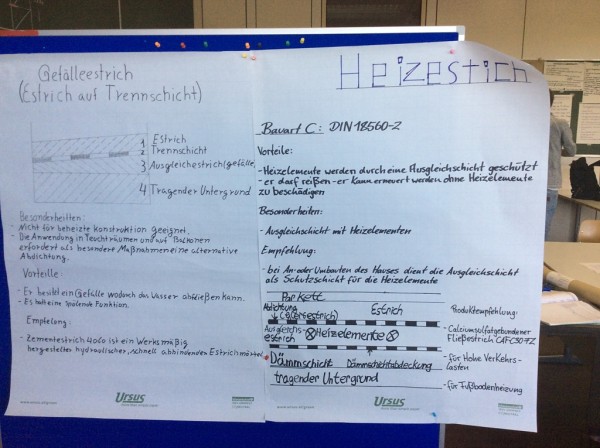 Gefälleestrich
(Estrich auf Trennschicht)
1 Estrich
2 Trennschicht
3 Ausgleichestrich (gefälle)
4 Tragender Untergrund
Besonderheitten:
- Nicht für beheizte Konstruktion geeignet.
- Die Anwendung in Feuchträumen und auf Balkonen
erfordert als besondere Maßnahmen eine alternative
Abdichtung.
Vorteille
- Er besitzt ein Gefälle wodurch das Wasser abfließen kann.
- Es hat eine Funktion.
Empfelung:
- Zementestrich 4060 ist ein Werksmäßig
hergestellter hydraulischer, schnell abbindenden Estrichmörtel
www.ursus.de
Ursus
Heizestich
Bauart C: DIN 18560-2
Vorteile:
- Heizelemente werden durch eine Ausgleichschicht geschützt
- er darf reißen - er Kann erneuert werden ohne Heizelemente
zu beschädigen
Besonderheiten:
- Ausgleichschicht mit Heizelementen
Empfehlung:
- bei An- oder Umbauten des Hauses dient die Ausgleichschicht
als Schutzschicht für die Heizelemente
Parkett
Abdichtung Estrich
Ausgleichs-
estrich Heizelemente
Dämmschicht Dämmschichtabdeckung
tragender Untergrund
Produktempfehlung:
- Calciumsulfatgebundener
Fließestrich CAF-C30-F7
- für Hohe Verkehrs-
lasten
- für Fußbodenheizung
Ursus